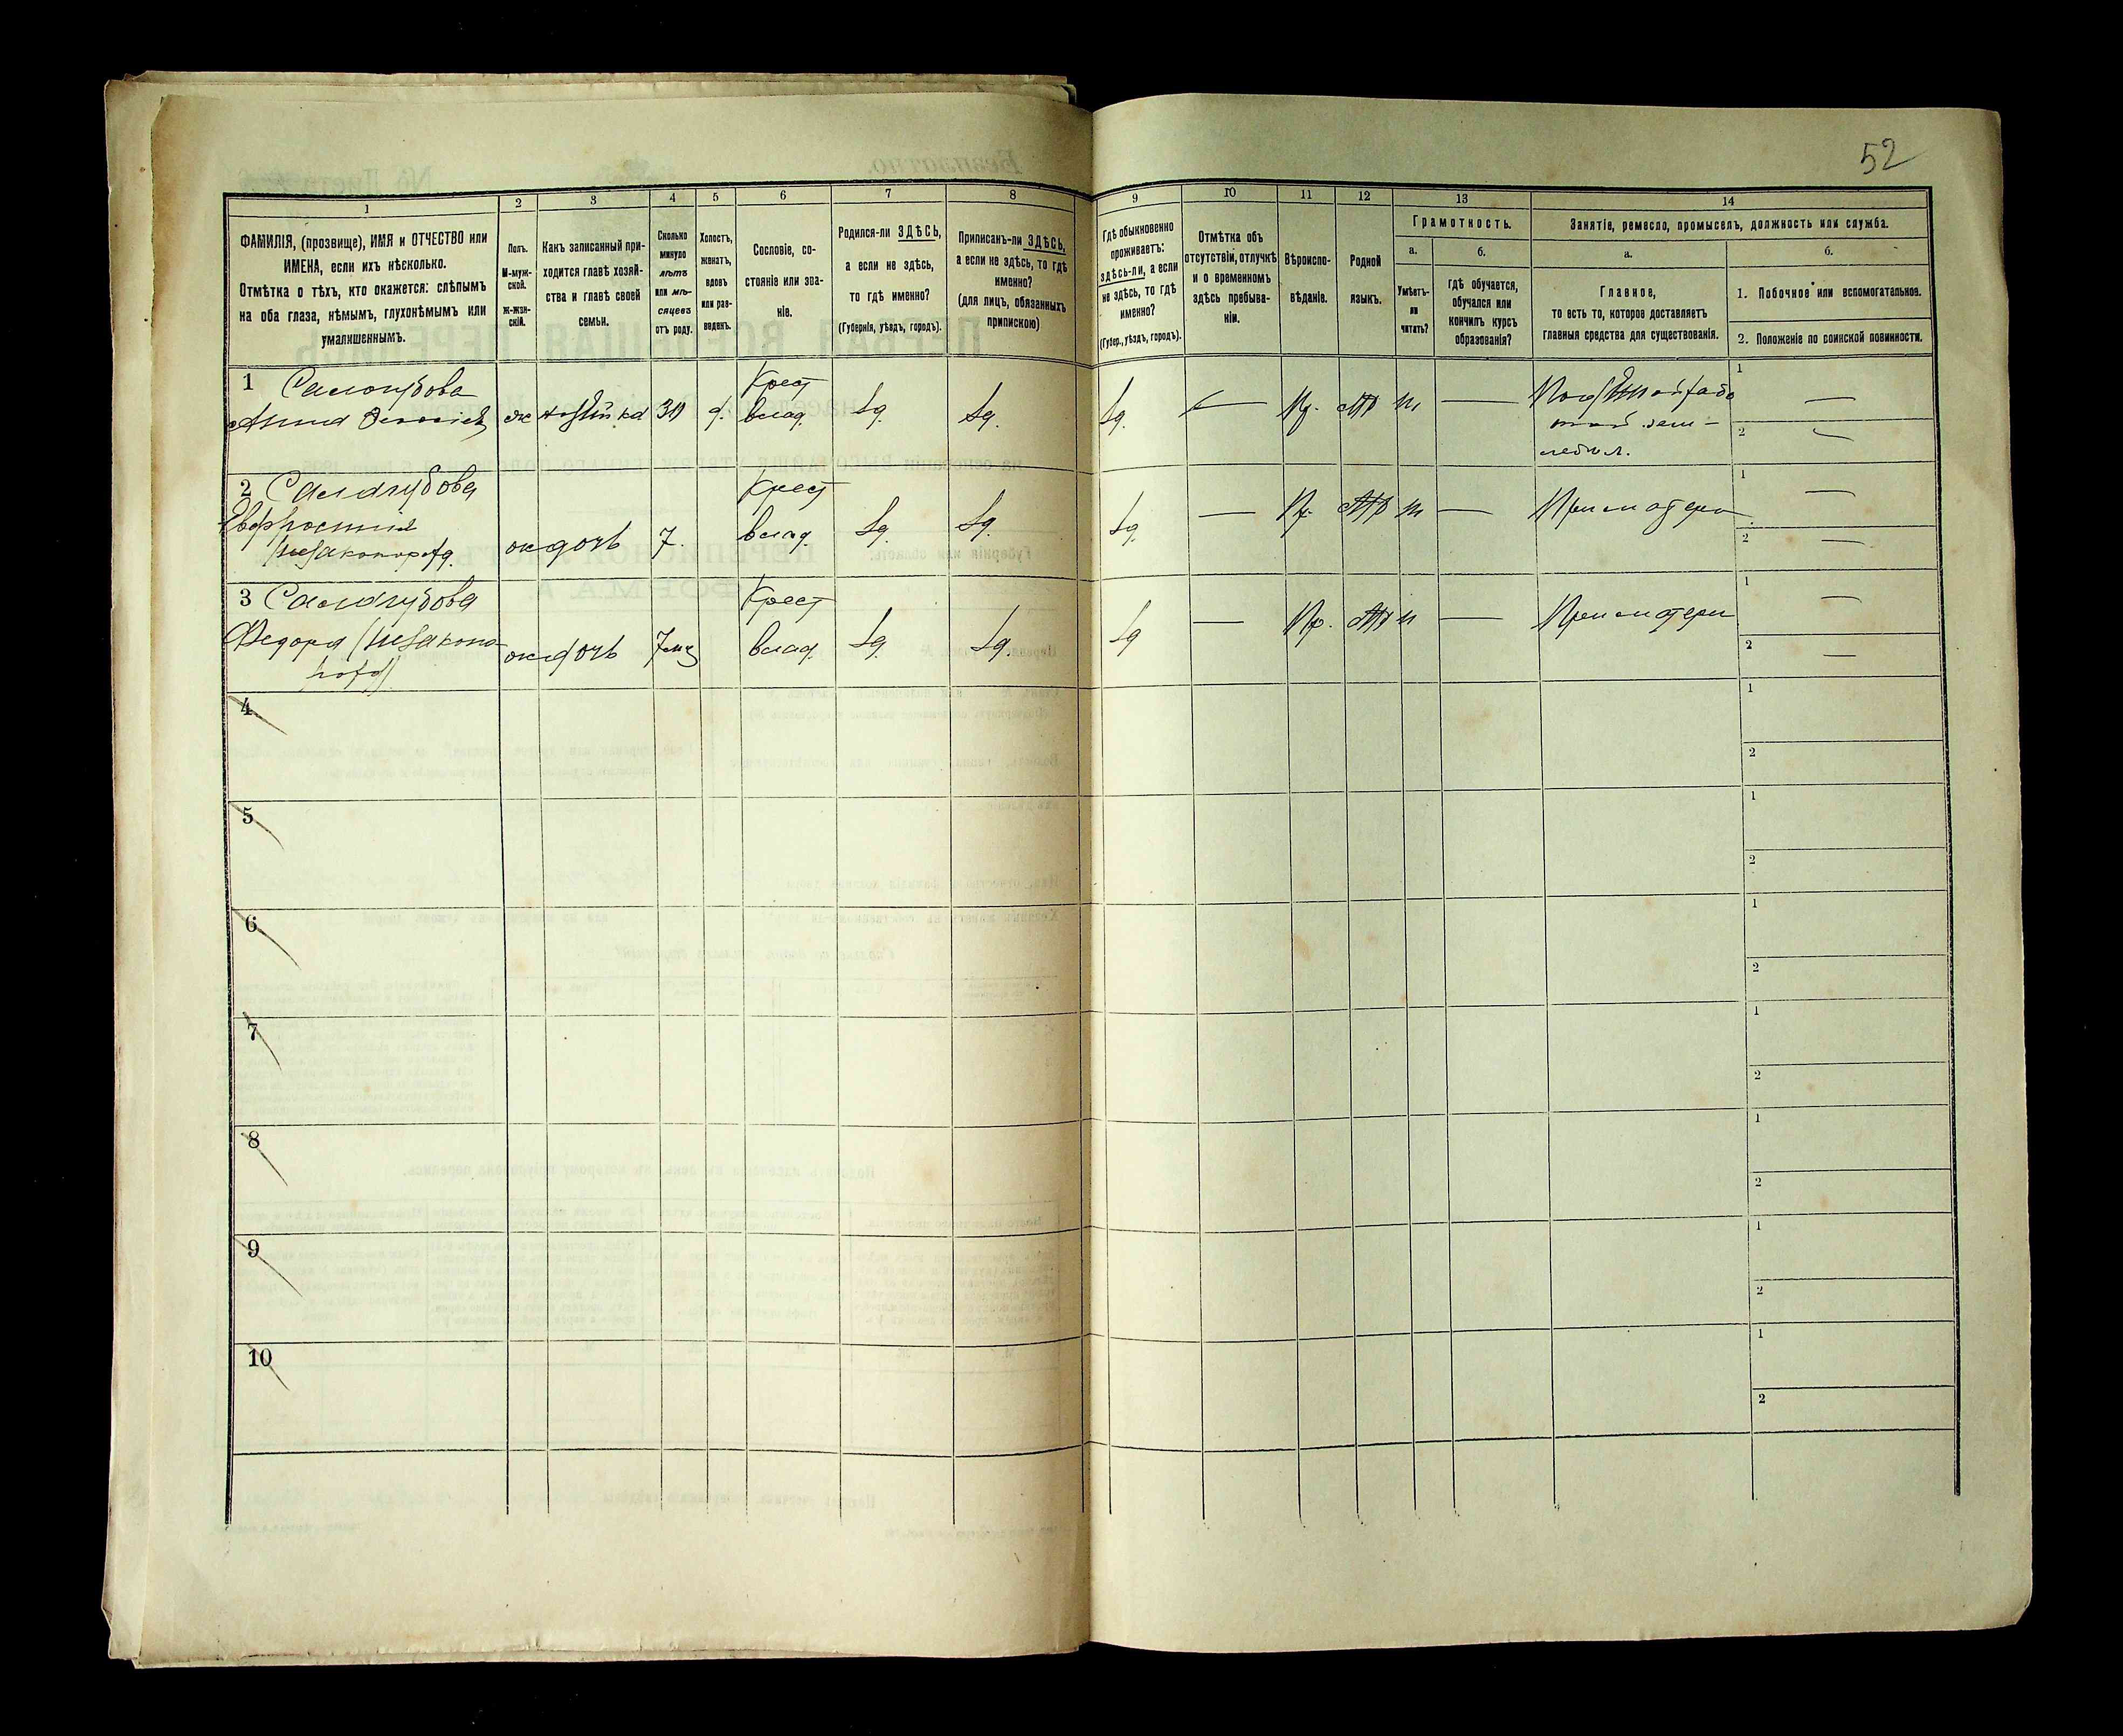 52
1
2
3
4
5
6
7
8
9
10
11
12
13
14
ФАМИЛІЯ, (прозвище), ИМЯ и ОТЧЕСТВО или
ИМЕНА, если ихъ нѣсколько.
Отмѣтка о тѣхъ, кто окажется: слѣпымъ
на оба глаза, нѣмымъ, глухонѣмымъ или
умалишеннымъ.
Полъ.
М-муж-
ской.
Ж-жен-
скій.
Какъ записанный при-
ходится главѣ хозяй-
ства и главѣ своей
семьи.
Сколько
минуло
лѣтъ
или мѣ-
сяцевъ
отъ роду.
Холостъ,
женатъ,
вдовъ
или раз-
веденъ.
Сословіе, со-
стояніе или зва-
ніе.
Родился-ли ЗДѢСЬ,
а если не здѣсь,
то гдѣ именно?
(Губернія, уѣздъ, городъ).
Приписанъ-ли ЗДѢСЬ,
а если не здѣсь, то гдѣ
именно?
(для лицъ, обязанныхъ
припискою)
Гдѣ обыкновенно
проживаетъ:
здѣсь-ли, а если
не здѣсь, то гдѣ
именно?
(Губер., уѣздъ, городъ).
Отмѣтка объ
отсутствіи, отлучкѣ
и о временномъ
здѣсь пребыва-
ніи.
Вѣроиспо-
вѣданіе.
Родной
языкъ.
Грамотность.
а.
Умѣетъ-
ли
читать?
б.
гдѣ обучается,
обучался или
кончилъ курсъ
образованія?
Занятіе, ремесло, промыселъ, должность или служба.
а.
Главное,
то есть то, которое доставляетъ
главныя средства для существованія.
б.
1. Побочное или вспомогательное.
2. Положеніе по воинской повинности.
1 Самогубова
Анна ж хозяйка 30 д. Крест влад. Зд. Зд. Зд. — Пр. н —
1 —
2 —
2 Самогубова
Евфросинія
(незаконорожд. ж дочь 7 Крест влад. Зд. Зд. Зд. — Пр. н — При матери
1 —
2 —
3 Самогубова
Федора (незаконо-
рожд) ж дочь 7 мц Крест влад. Зд. Зд. Зд — Пр. н — При матери
1 —
2 —
4
1
2
5
1
2
6
1
2
7
1
2
8
1
2
9
1
2
10
1
2